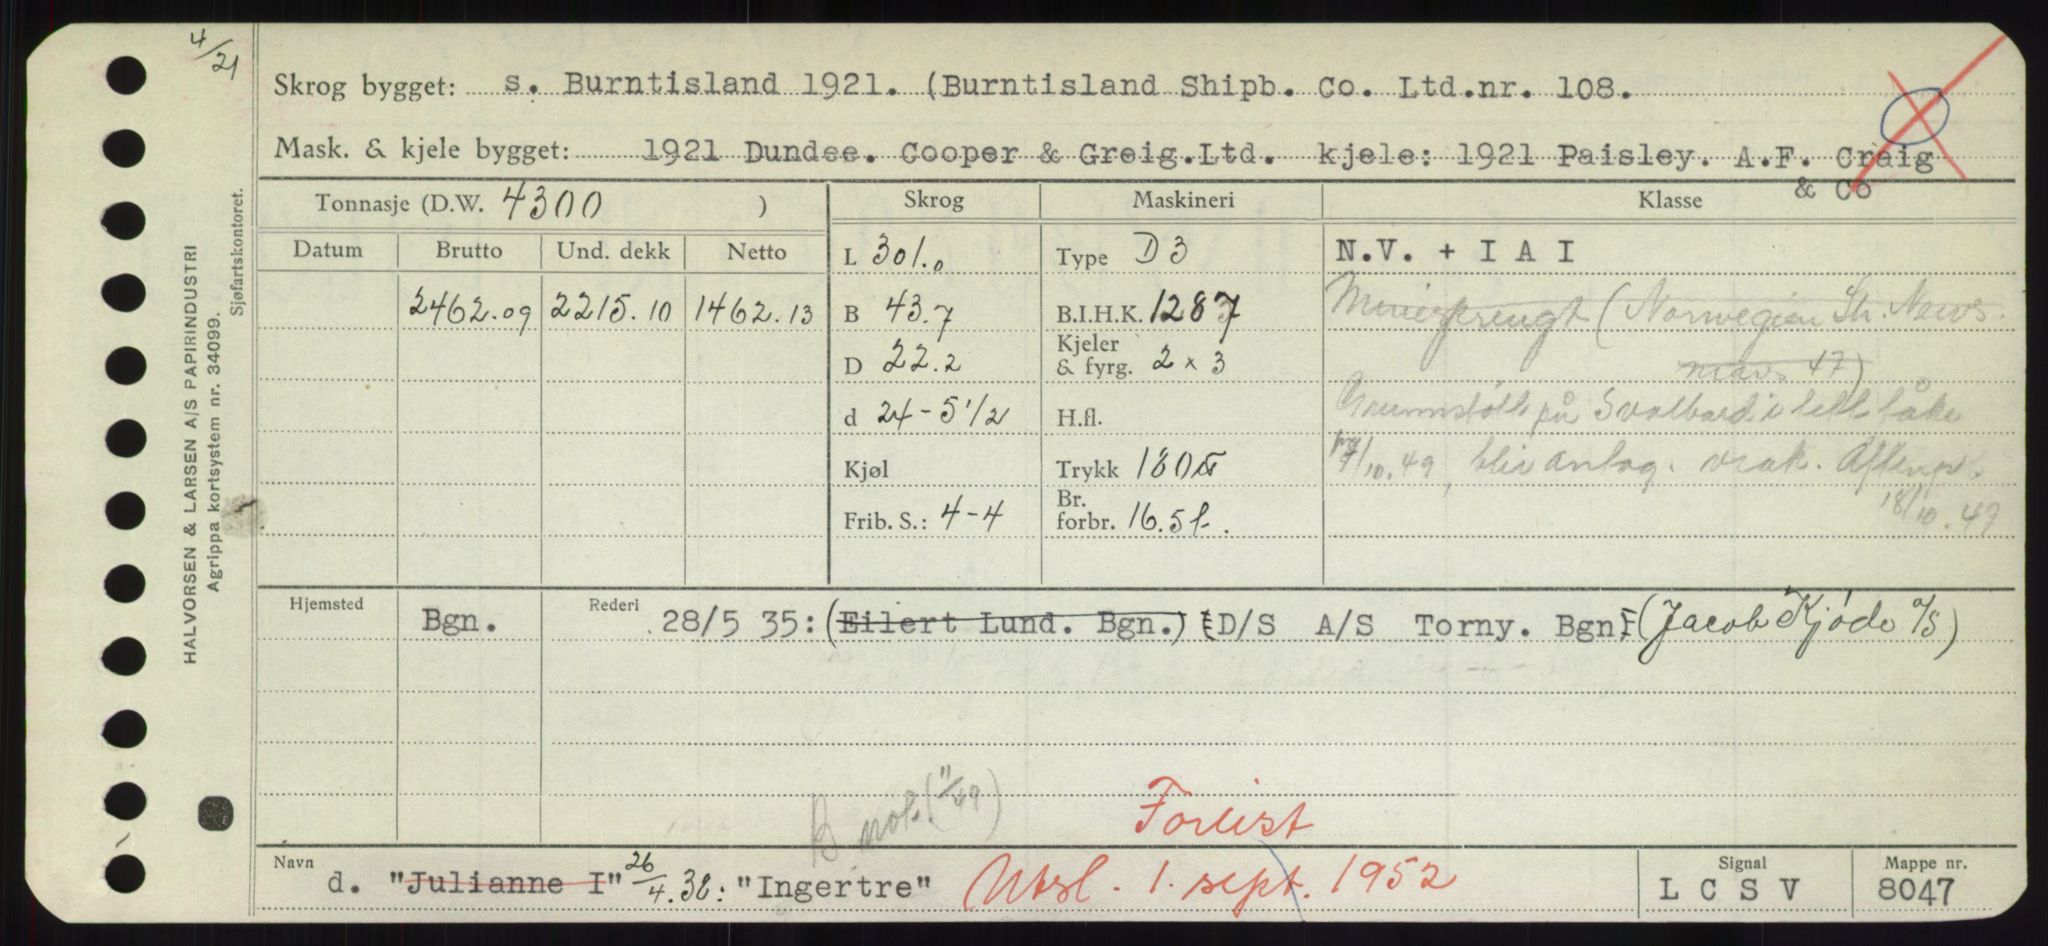 4/21
Skrog bygget: s. Burntisland 1921. (Burntisland Shipb. Co. Ltd.nr. 108.
Mask. & kjele bygget: 1921 Dundee. Cooper & Greig.Ltd. kjele: 1921 Paisley. A.F. Craig
& Co
Tonnasje (D.W. 4300 )
Skrog Maskineri Klasse
Datum Brutto Und. dekk Netto
L 301.0 Type D3 N.V. + I A I
2462.09 2215.10 1462.13
B 43.7 B.I.H.K. 1287
Minesprengt (Norwegian Sh. News.
mars 47)
D 22.2 Kjeler & fyrg. 2 x 3
d 24-5 1/2 H.fl.
Grunnstøtt på Svalbard i tett tåke
Kjøl Trykk 180
/10.49, blir antag. vrak. Aftenp.
18/10.49
Frib. S.: 4-4 Br. forbr. 16.5 t.
Hjemsted Bgn. Rederi 28/5 35: (Eilert Lund. Bgn.) D/S A/S Torny. Bgn. (Jacob Kjøde A/S)
B nok (11/49)
Forlist
Navn d. "Julianne I" 26/4.38: "Ingertre" Utsl. 1. sept. 1952
Signal L C S V
Mappe nr. 8047
HALVORSEN & LARSEN A/S PAPIRINDUSTRI
Agrippa kortsystem nr. 34099.
Sjøfartskontoret.